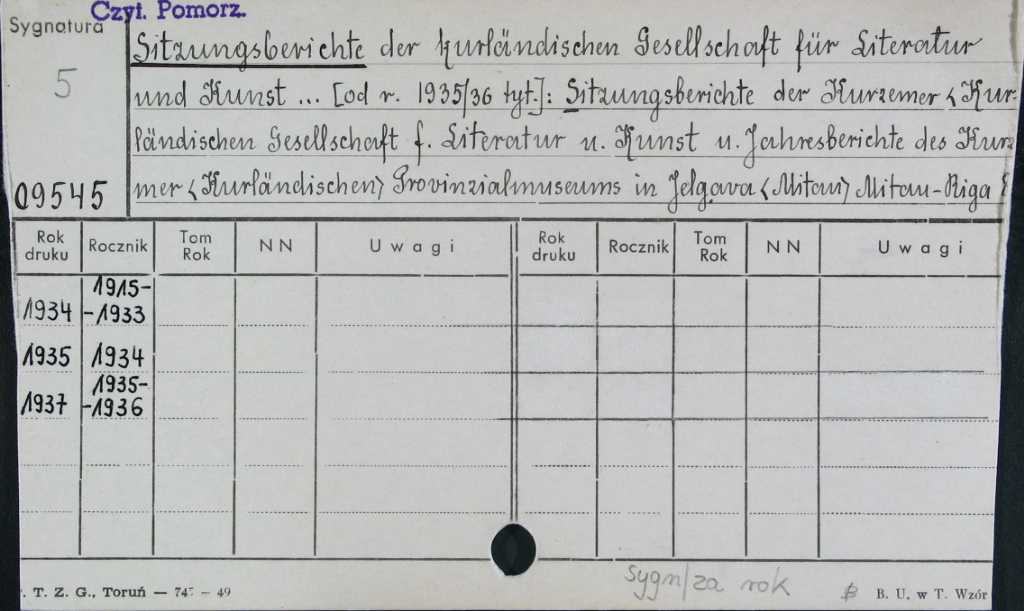 Czyt. Pomorz.
Sygnatura
5
09545
Sitzungsberichte der kurländischen Gesellschaft für Literatur
und Kunst ... [od r. 1935/36 tyt.]: Sitzungsberichte der Kurzemer <Kur-
ländischen Gesellschaft f. Literatur u. Kunst u. Jahresberichte des Kurze
mer <Kurländischen> Provinzialmuseums in Jelgava <Mitau> Mitau-Riga
Rok druku Rocznik Tom Rok NN Uwagi Rok druku Rocznik Tom Rok NN Uwagi
1934 1915-
-1933
1935 1934
1937 1935-
-1936
sygn/za rok
T. Z. G., Toruń — 745 — 49
B. U. w T. Wzór